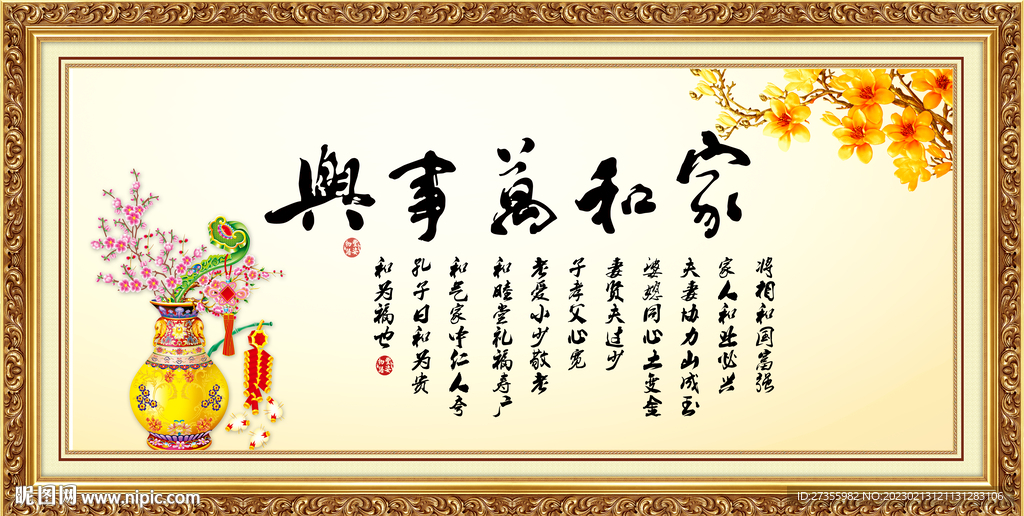 家和萬事興
将相和国富强
家人和业必兴
夫妻协力山成玉
婆媳同心土变金
妻贤夫过少
子孝父心宽
老爱小少敬老
和睦堂礼福寿广
和气家中仁人夸
孔子曰和为贵
和为福也
昵图网 www.nipic.com
ID:27355982 NO:20230213121131283106